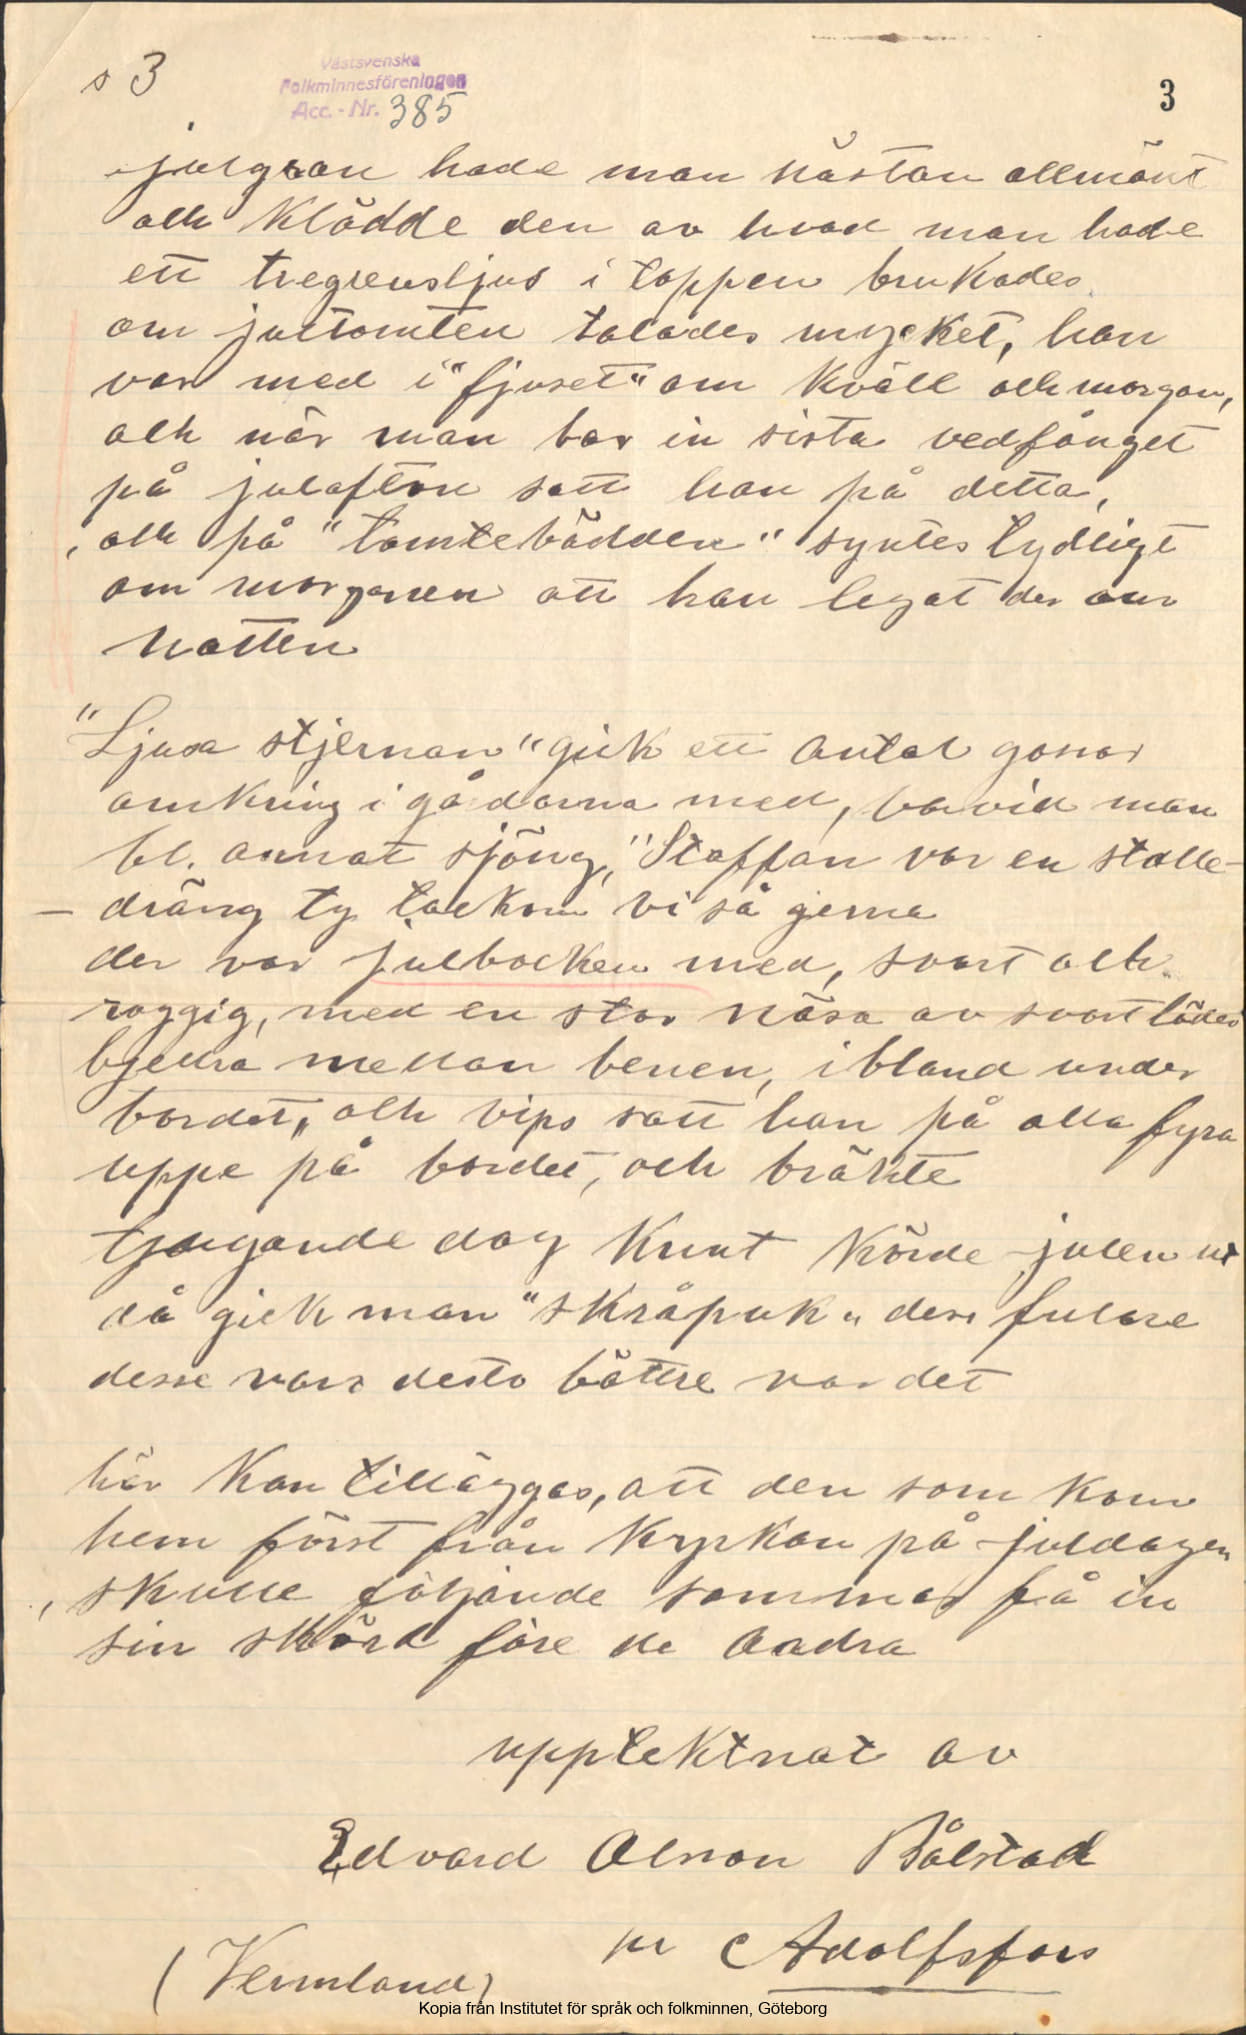 s 3
Västsvenska
Folkminnesföreningen
Acc. - Nr. 385
3
julgran hade man nästan allmänt
och klädde den av hvad man hade
ett tregrensljus i toppen brukades
om jultomten talades mycket, han
var med i "fjuset" om kväll och morgon,
och när man bar in sista vedfånget
på julafton satt han på detta,
och på "tomtebädden" syntes tydligt
om morganen att han legat der om
natten
"Ljusa stjernan" gick ett antal gossar
omkring i gårdarna med, varvid man
bl. annat sjöng, "Staffan var en stalle-
- dräng ty tackom vi så gerna
der var julbocken med, svart och
raggig, med en stor näsa av svart läder
bjellra mellan benen, ibland under
bordet, och vips satt han på alla fyra
uppe på bordet, och bräkte
tjugande dag Knut körde julen ut
då gick man "skråpuk" dess fulare
desse vars desto bättre var det
här kan tilläggas, att den som kom
hem först från kyrkan på juldagen
skulle följande sommar få in
sin skörd före de andra
upptektnat av
Edvard Olsson Bålstad
pr Adolfsfors
(Vermland)
Kopia från Institutet för språk och folkminnen, Göteborg